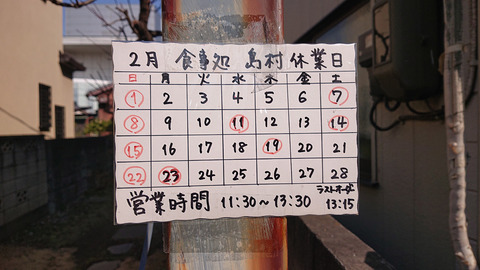 2月 食事処 島村 休業日
日 月 火 水 木 金 土
1 2 3 4 5 6 7
8 9 10 11 12 13 14
15 16 17 18 19 20 21
22 23 24 25 26 27 28
営業時間 11:30～13:30 ラストオーダー 13:15